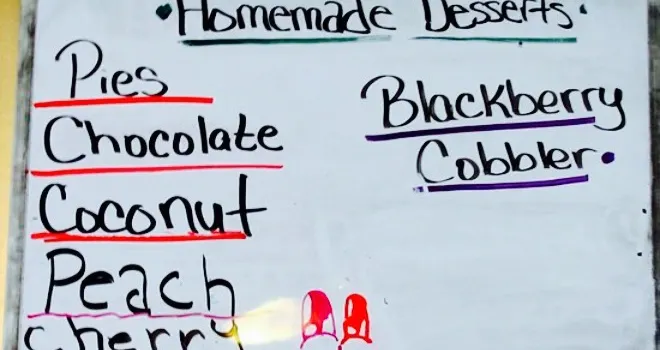 • Homemade Desserts •
Pies
Chocolate
Coconut
Peach
Cherry
Blackberry
Cobbler •